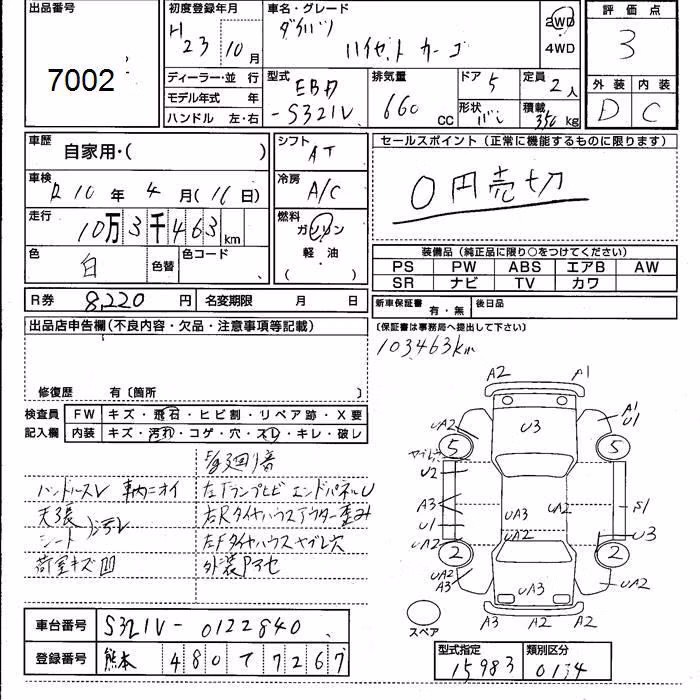 出品番号
7002
初度登録年月
H23 10月
ディーラー・並 行
モデル年式 年
ハンドル 左・右
車名・グレード
ダイハツ
ハイゼット カーゴ
2WD
4WD
型式
EBD
-S321V
排気量
660 cc
ドア 5
形状 バン
定員 2人
積載 350 kg
評価点
3
外装 内装
D C
車歴
自家用・( )
車検
R10年 4月(16日)
走行
10万3千463km
色
白
色替
色コード
シフト
AT
冷房
A/C
燃料
ガソリン
軽 油
( )
セールスポイント(正常に機能するものに限ります)
0円売切
装備品(純正品に限り○をつけてください)
PS PW ABS エアB AW
SR ナビ TV カワ
R券 8,220円
名変期限 月 日
新車保証書 有・無
後日品
(保証書は事務局へ提出して下さい)
103,463km
出品店申告欄(不良内容・欠品・注意事項等記載)
修復歴 有〔箇所 〕
検査員 FW キズ・飛石・ヒビ割・リペア跡・X要
記入欄 内装 キズ・汚れ・コゲ・穴・スレ・キレ・破レ
ハンドルスレ 車内ニオイ
天張
シート 汚レ
荷室キズ凹
左Tランプヒビ エンドパネルU
右Rタイヤハウスアウター歪み
左Fタイヤハウスヤブレ穴
外装Pアセ
A2 A1
U3
UA2
A1
U1
5 5
ヤブレ
U2
A3
U1
UA2
UA3
UA2
UA2
S1
U3
2 2
UA2
UA2
A3
UA3
UA2
A3 A2 A2
スペア
車台番号 S321V-0122840
登録番号 熊本 480 て 7267
型式指定 15983
類別区分 0134